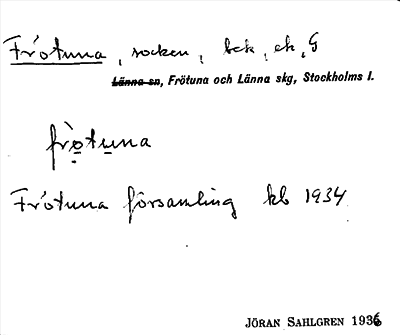 Frötuna, socken, bck, ek, G
Länna sn, Frötuna och Länna skg, Stockholms l.
frötuna
Frötuna församling kb 1934
JÖRAN SAHLGREN 1936